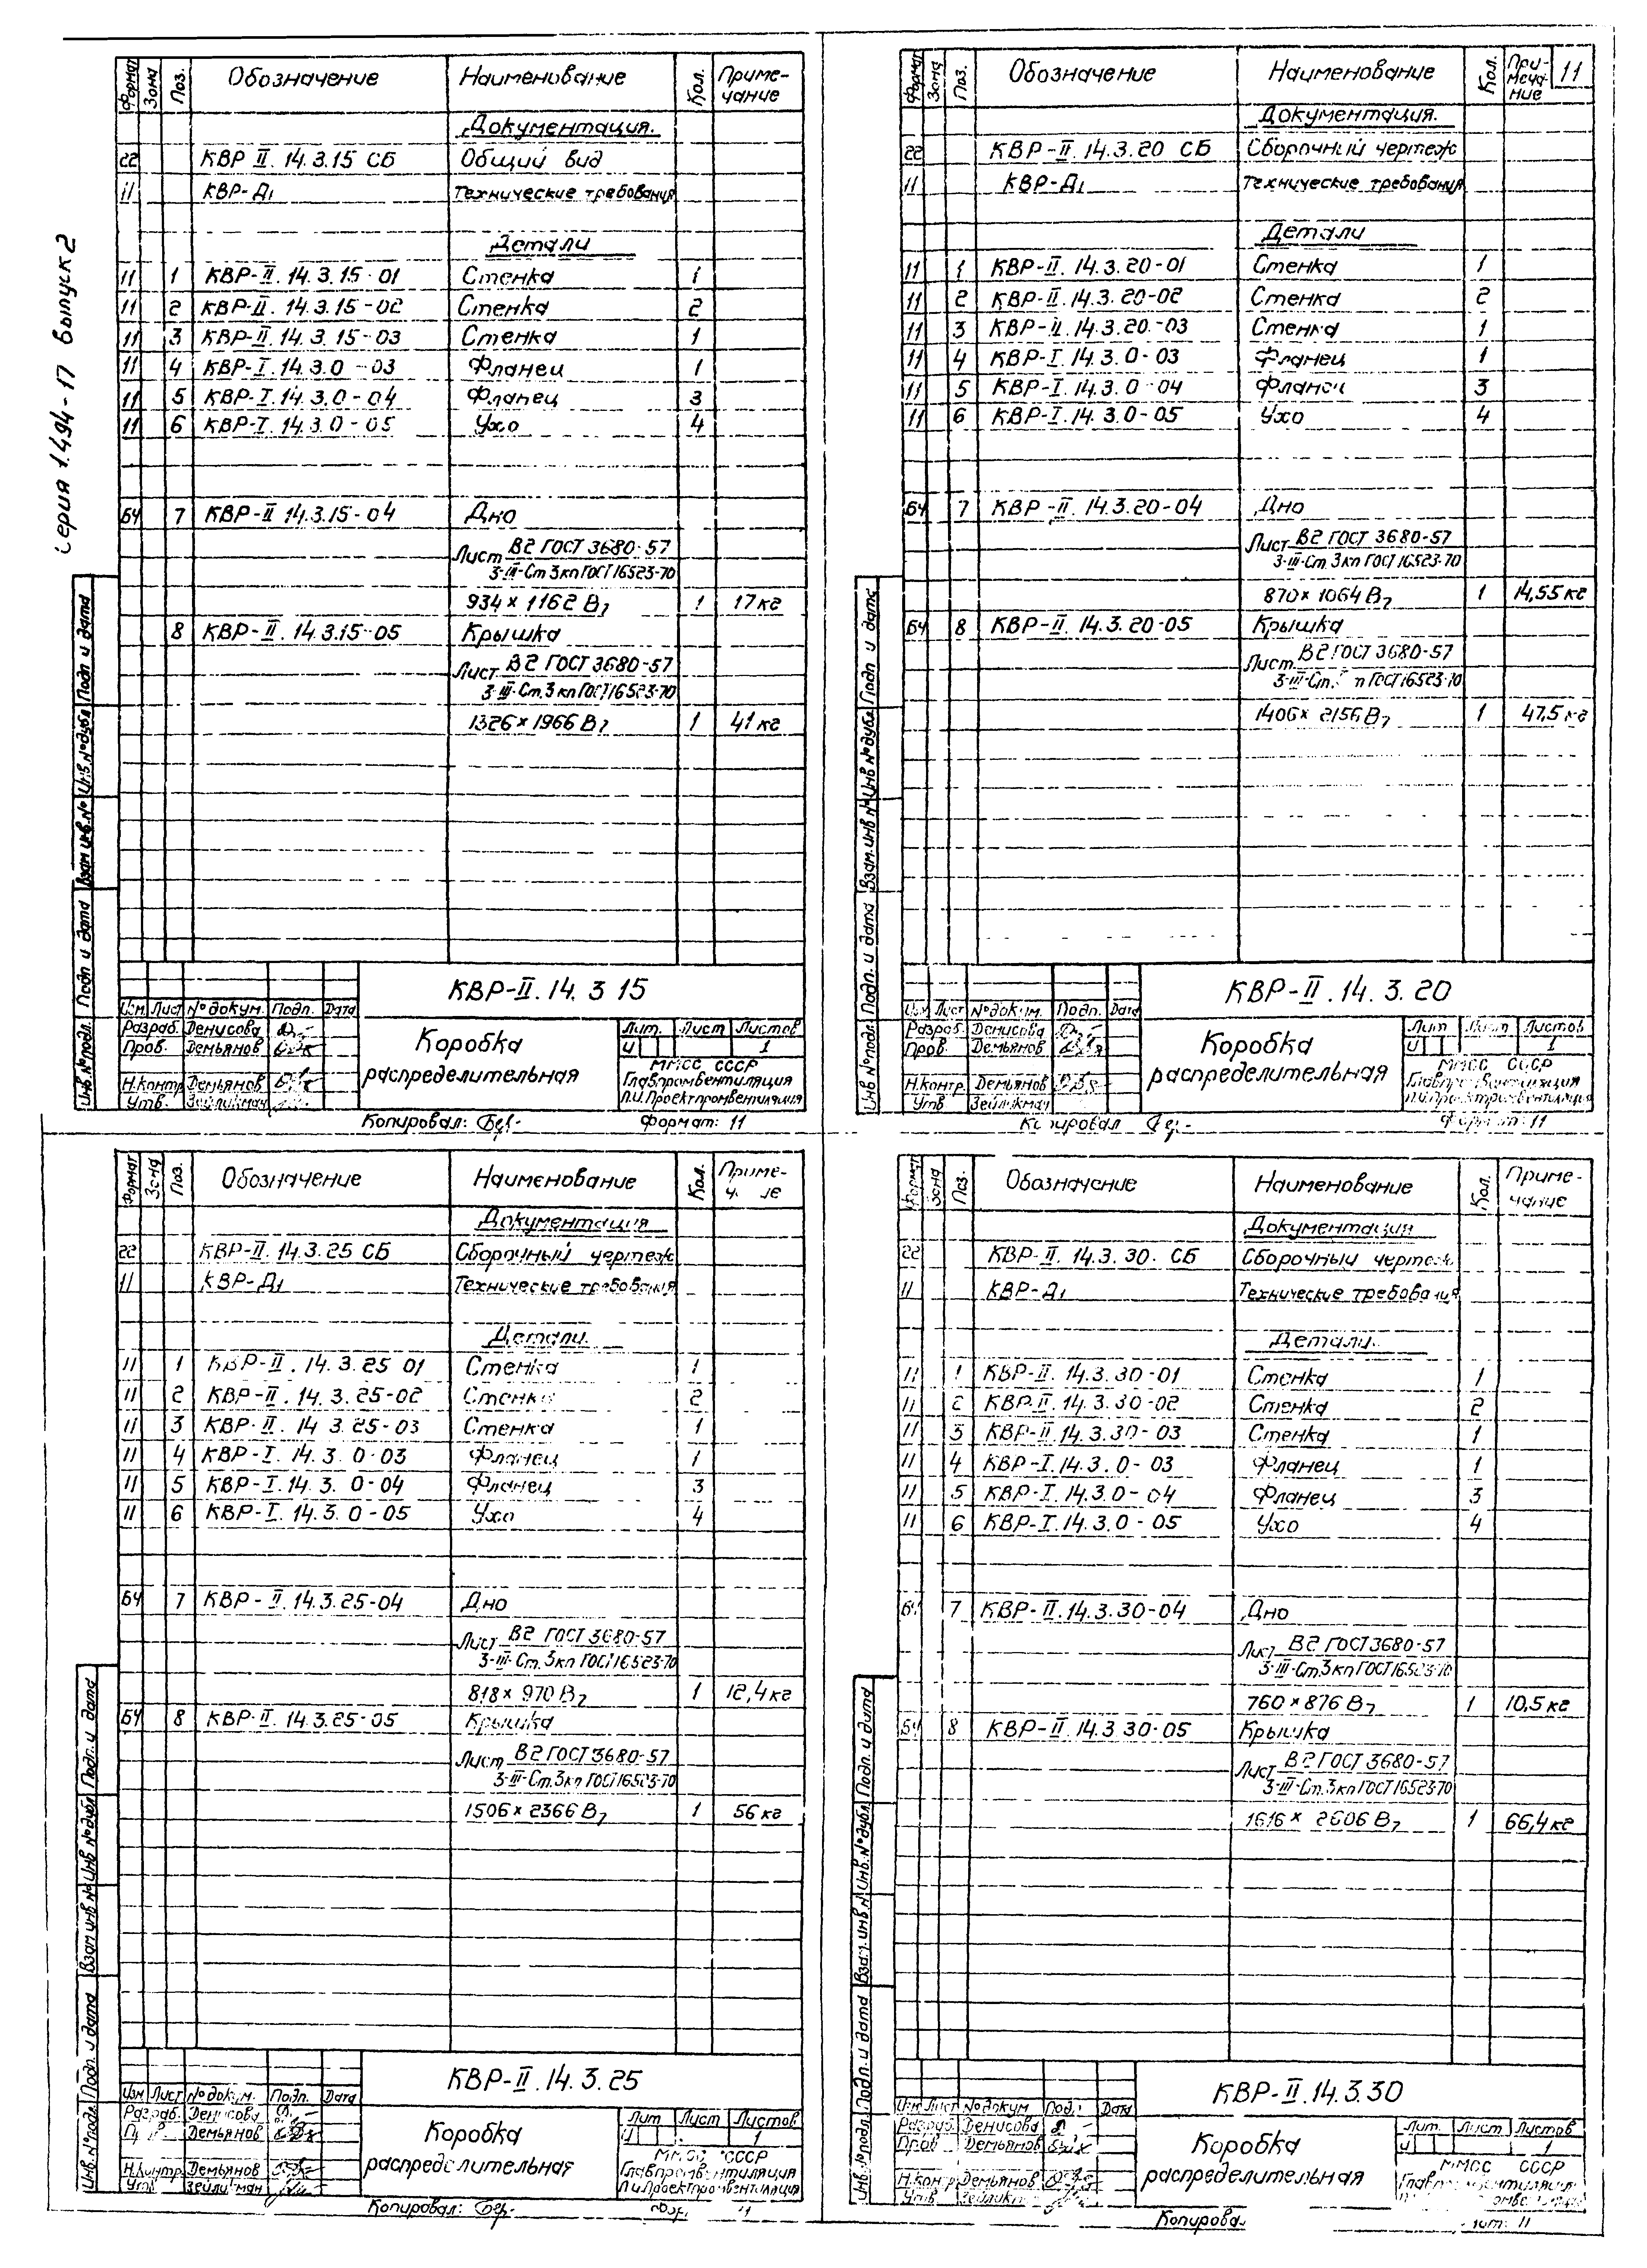 серия 1.494-17 выпуск 2
Формат Зона Поз. Обозначение Наименование Кол. Приме-чание
Документация.
22 КВР II. 14.3.15 СБ Общий вид
11 КВР-Д1 Технические требования
Детали
11 1 КВР-II. 14.3.15-01 Стенка 1
11 2 КВР-II. 14.3.15-02 Стенка 2
11 3 КВР-II. 14.3.15-03 Стенка 1
11 4 КВР-I. 14.3.0-03 Фланец 1
11 5 КВР-I. 14.3.0-04 Фланец 3
11 6 КВР-I. 14.3.0-05 Ухо 4
БЧ 7 КВР-II 14.3.15-04 Дно
Лист В2 ГОСТ 3680-57
3-III-Ст 3кп ГОСТ 16523-70
934×1162 В7 1 17кг
8 КВР-II. 14.3.15-05 Крышка
Лист В2 ГОСТ 3680-57
3-III-Ст.3кп ГОСТ 16523-70
1326×1966 В7 1 41кг
Инв.№подл. Подп и дата Взам инв.№ Инв.№дубл Подп и дата
КВР-II. 14. 3 15
Изм Лист №докум. Подп. Дата
Разраб. Денисова
Пров. Демьянов
Н.контр Демьянов
Утв. Зейликман
Коробка
распределительная
Лит. Лист Листов
И 1
ММСС СССР
Главпромвентиляция
П.И.Проектпромвентиляция
Копировал: Формат: 11
Формат Зона Поз. Обозначение Наименование Кол. При-меча-ние 11
Документация.
22 КВР-II. 14.3.20 СБ Сборочный чертеж
11 КВР-Д1 Технические требования
Детали
11 1 КВР-II. 14.3.20-01 Стенка 1
11 2 КВР-II. 14.3.20-02 Стенка 2
11 3 КВР-II. 14.3.20-03 Стенка 1
11 4 КВР-I. 14.3.0-03 Фланец 1
11 5 КВР-I. 14.3.0-04 Фланец 3
11 6 КВР-I. 14.3.0-05 Ухо 4
БЧ 7 КВР-II. 14.3.20-04 Дно
Лист В2 ГОСТ 3680-57
3-III-Ст 3кп ГОСТ 16523-70
870×1064 В7 1 14,55кг
БЧ 8 КВР-II. 14.3.20-05 Крышка
Лист В2 ГОСТ 3680-57
3-III-Ст. п ГОСТ 16523-70
1406×2156 В7 1 47,5кг
Инв №подл. Подп. и дата Взам.инв № Инв №дубл Подп и дата
КВР-II. 14. 3. 20
Изм Лист №докум. Подп. Дата
Разраб. Денисова
Пров. Демьянов
Н.контр. Демьянов
Утв Зейликман
Коробка
распределительная
Лит Лист Листов
И 1
ММСС СССР
Главпромвентиляция
П.И.Проектпромвентиляция
Копировал Формат: 11
Формат Зона Поз. Обозначение Наименование Кол. Приме-
Документация
22 КВР-II. 14.3.25 СБ Сборочный чертеж
11 КВР-Д1 Технические требования
Детали.
11 1 КВР-II. 14.3.25 01 Стенка 1
11 2 КВР-II. 14.3.25-02 Стенка 2
11 3 КВР-II. 14 3.25-03 Стенка 1
11 4 КВР-I. 14.3.0-03 Фланец 1
11 5 КВР-I. 14.3.0-04 Фланец 3
11 6 КВР-I. 14.3.0-05 Ухо 4
БЧ 7 КВР-II. 14.3.25-04 Дно
Лист В2 ГОСТ 3680-57
3-III-Ст.3кп ГОСТ 16523-70
818×970 В7 1 12,4кг
БЧ 8 КВР-II. 14.3.25-05 Крышка
Лист В2 ГОСТ 3680-57
3-III-Ст.3кп ГОСТ 16523-70
1506×2366 В7 1 56кг
Инв.№подл. Подп. и дата Взам инв № Инв №дубл Подп. и дата
КВР-II. 14. 3. 25
Изм Лист №докум. Подп. Дата
Разраб. Денисова
Демьянов
Н.контр. Демьянов
Утв Зейликман
Коробка
распределительная
Лит Лист Листов
И 1
ММСС СССР
Главпромвентиляция
П.И.Проектпромвентиляция
Копировал: 11
Формат Зона Поз. Обозначение Наименование Кол. Приме-чание
Документация
22 КВР-II. 14.3.30. СБ Сборочный чертеж
11 КВР-Д1 Технические требования
Детали.
11 1 КВР-II. 14.3.30-01 Стенка 1
11 2 КВР-II. 14.3.30-02 Стенка 2
11 3 КВР-II. 14.3.30-03 Стенка 1
11 4 КВР-I. 14.3.0-03 Фланец 1
11 5 КВР-I. 14.3.0-04 Фланец 3
11 6 КВР-I. 14.3.0-05 Ухо 4
БЧ 7 КВР-II. 14.3.30-04 Дно
Лист В2 ГОСТ 3680-57
3-III-Ст.3кп ГОСТ 16523-70
760×876 В7 1 10,5кг
БЧ 8 КВР-II. 14.3 30-05 Крышка
Лист В2 ГОСТ 3680-57
3-III-Ст.3кп ГОСТ 16523-70
1616×2606 В7 1 66,4кг
Инв.№подл. Подп. и дата Взам.инв.№ Инв.№дубл. Подп. и дата
КВР-II. 14.3.30
Изм Лист №докум Подп. Дата
Разраб. Денисова
Пров Демьянов
Н.контр Демьянов
Утв Зейликм
Коробка
распределительная
Лит. Лист Листов
И 1
ММСС СССР
Главпромвентиляция
Копирова 11